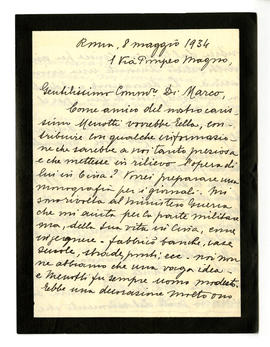 Roma, 8 maggio 1934
1 Via Pompeo Magno,
Gentilissimo Comm. De Marco,
Come amico del nostro caris
simo Menotti vorrebbe Ella, con
tribuire con qualche informazio
ne che sarebbe a noi tanto preziosa
e che mettesse in rilievo l'opera di
lui in Cina? Vorrei preparare una
monografia per i giornali. Mi
sono rivolta al ministero Guerra
che mi aiuta per la parte militare
ma, della sua vita in Cina, come
ingegnere - fabbricò banche, case
scuole, strade, ponti, ecc. - noi non
ne abbiamo che una vaga idea -
e Menotti fu sempre uomo modesto.
Ebbe una decorazione molto ono